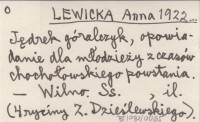 o LEWICKA Anna 1922...
Jędrek góralczyk, opowia-
danie dla młodzieży z czasów
chochołowskiego powstania.
— Wilno. Ss. , il.
(4 ryciny Z. Dzieślewskiego).